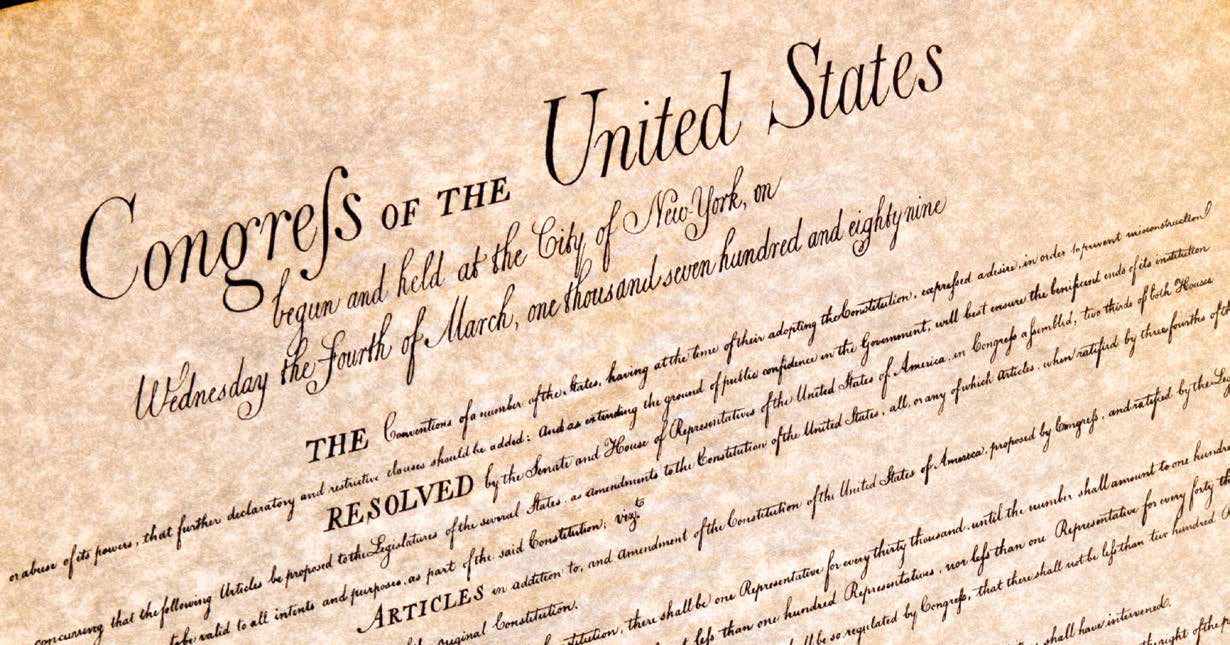 Congreſs OF THE United States
begun and held at the City of New-York, on
Wednesday the Fourth of March, one thousand seven hundred and eighty nine
THE Conventions of a number of the States, having at the time of their adopting the Constitution, expreſsed a desire, in order to prevent misconstruction
or abuse of its powers, that further declaratory and restrictive clauses should be added: And as extending the ground of public confidence in the Government, will best ensure the beneficent ends of its institution
RESOLVED by the Senate and House of Representatives of the United States of America, in Congreſs aſsembled, two thirds of both Houses
concurring that the following Articles be proposed to the Legislatures of the several States, as amendments to the Constitution of the United States, all, or any of which Articles, when ratified by three fourths of
to be valid to all intents and purposes, as part of the said Constitution; vizt
ARTICLES in addition to, and amendment of the Constitution of the United States of America, proposed by Congreſs, and ratified by the
original Constitution.
there shall be one Representative for every thirty thousand, until the number shall amount to one
leſs than one hundred Representatives, nor leſs than one Representative for every forty
be so regulated by Congreſs, that there shall not be leſs than two hundred
shall have intervened.
the right of the